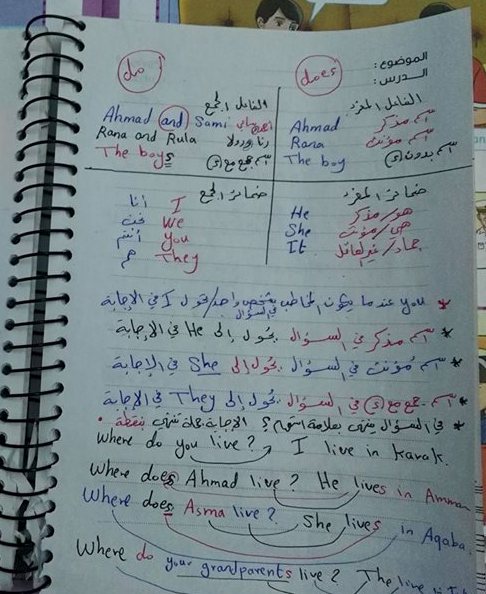 الموضوع:
الدرس:
do
does
الفاعل المفرد
Ahmad اسم مذكر
Rana اسم مؤنث
The boy اسم بدون s
الفاعل الجمع
Ahmad and Sami
Rana and Rula
The boys اسم جمع مع s
ضمائر المفرد
He هو/مذكر
She هي/مؤنث
It جماد/غير العاقل
ضمائر الجمع
I أنا
We نحن
You أنتم
They هم
* you عندما يكون المخاطب شخص واحد/تحول I في الإجابة
في السؤال
* اسم مذكر في السؤال يحول إلى He في الإجابة
* اسم مؤنث في السؤال يحول إلى She في الإجابة
* اسم جمع مع s في السؤال يحول إلى They في الإجابة
* في السؤال ينتهي بعلامة استفهام ؟ الإجابة جملة تنتهي بنقطة .
Where do you live? I live in Karak.
Where does Ahmad live? He lives in Amman
Where does Asma live? She lives in Aqaba.
Where do your grandparents live? The live in